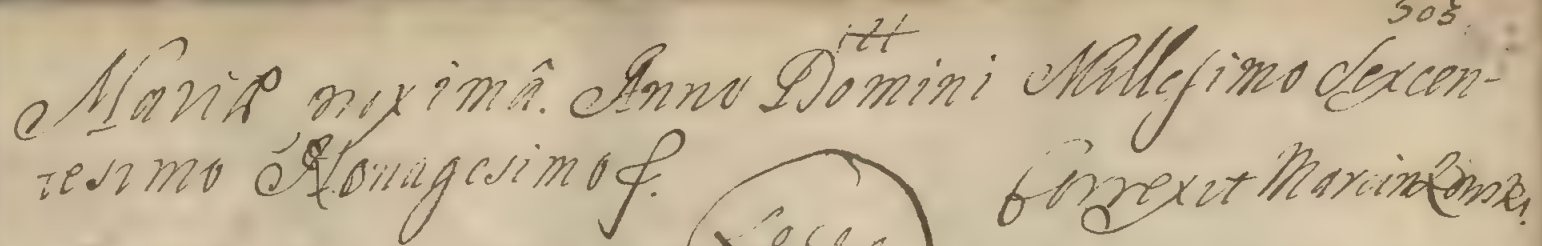 303
Mariæ proximâ. Anno Domini Millesimo Sexcen-
tesimo Nonagesimo
Correxit Marcinkowski
Locus